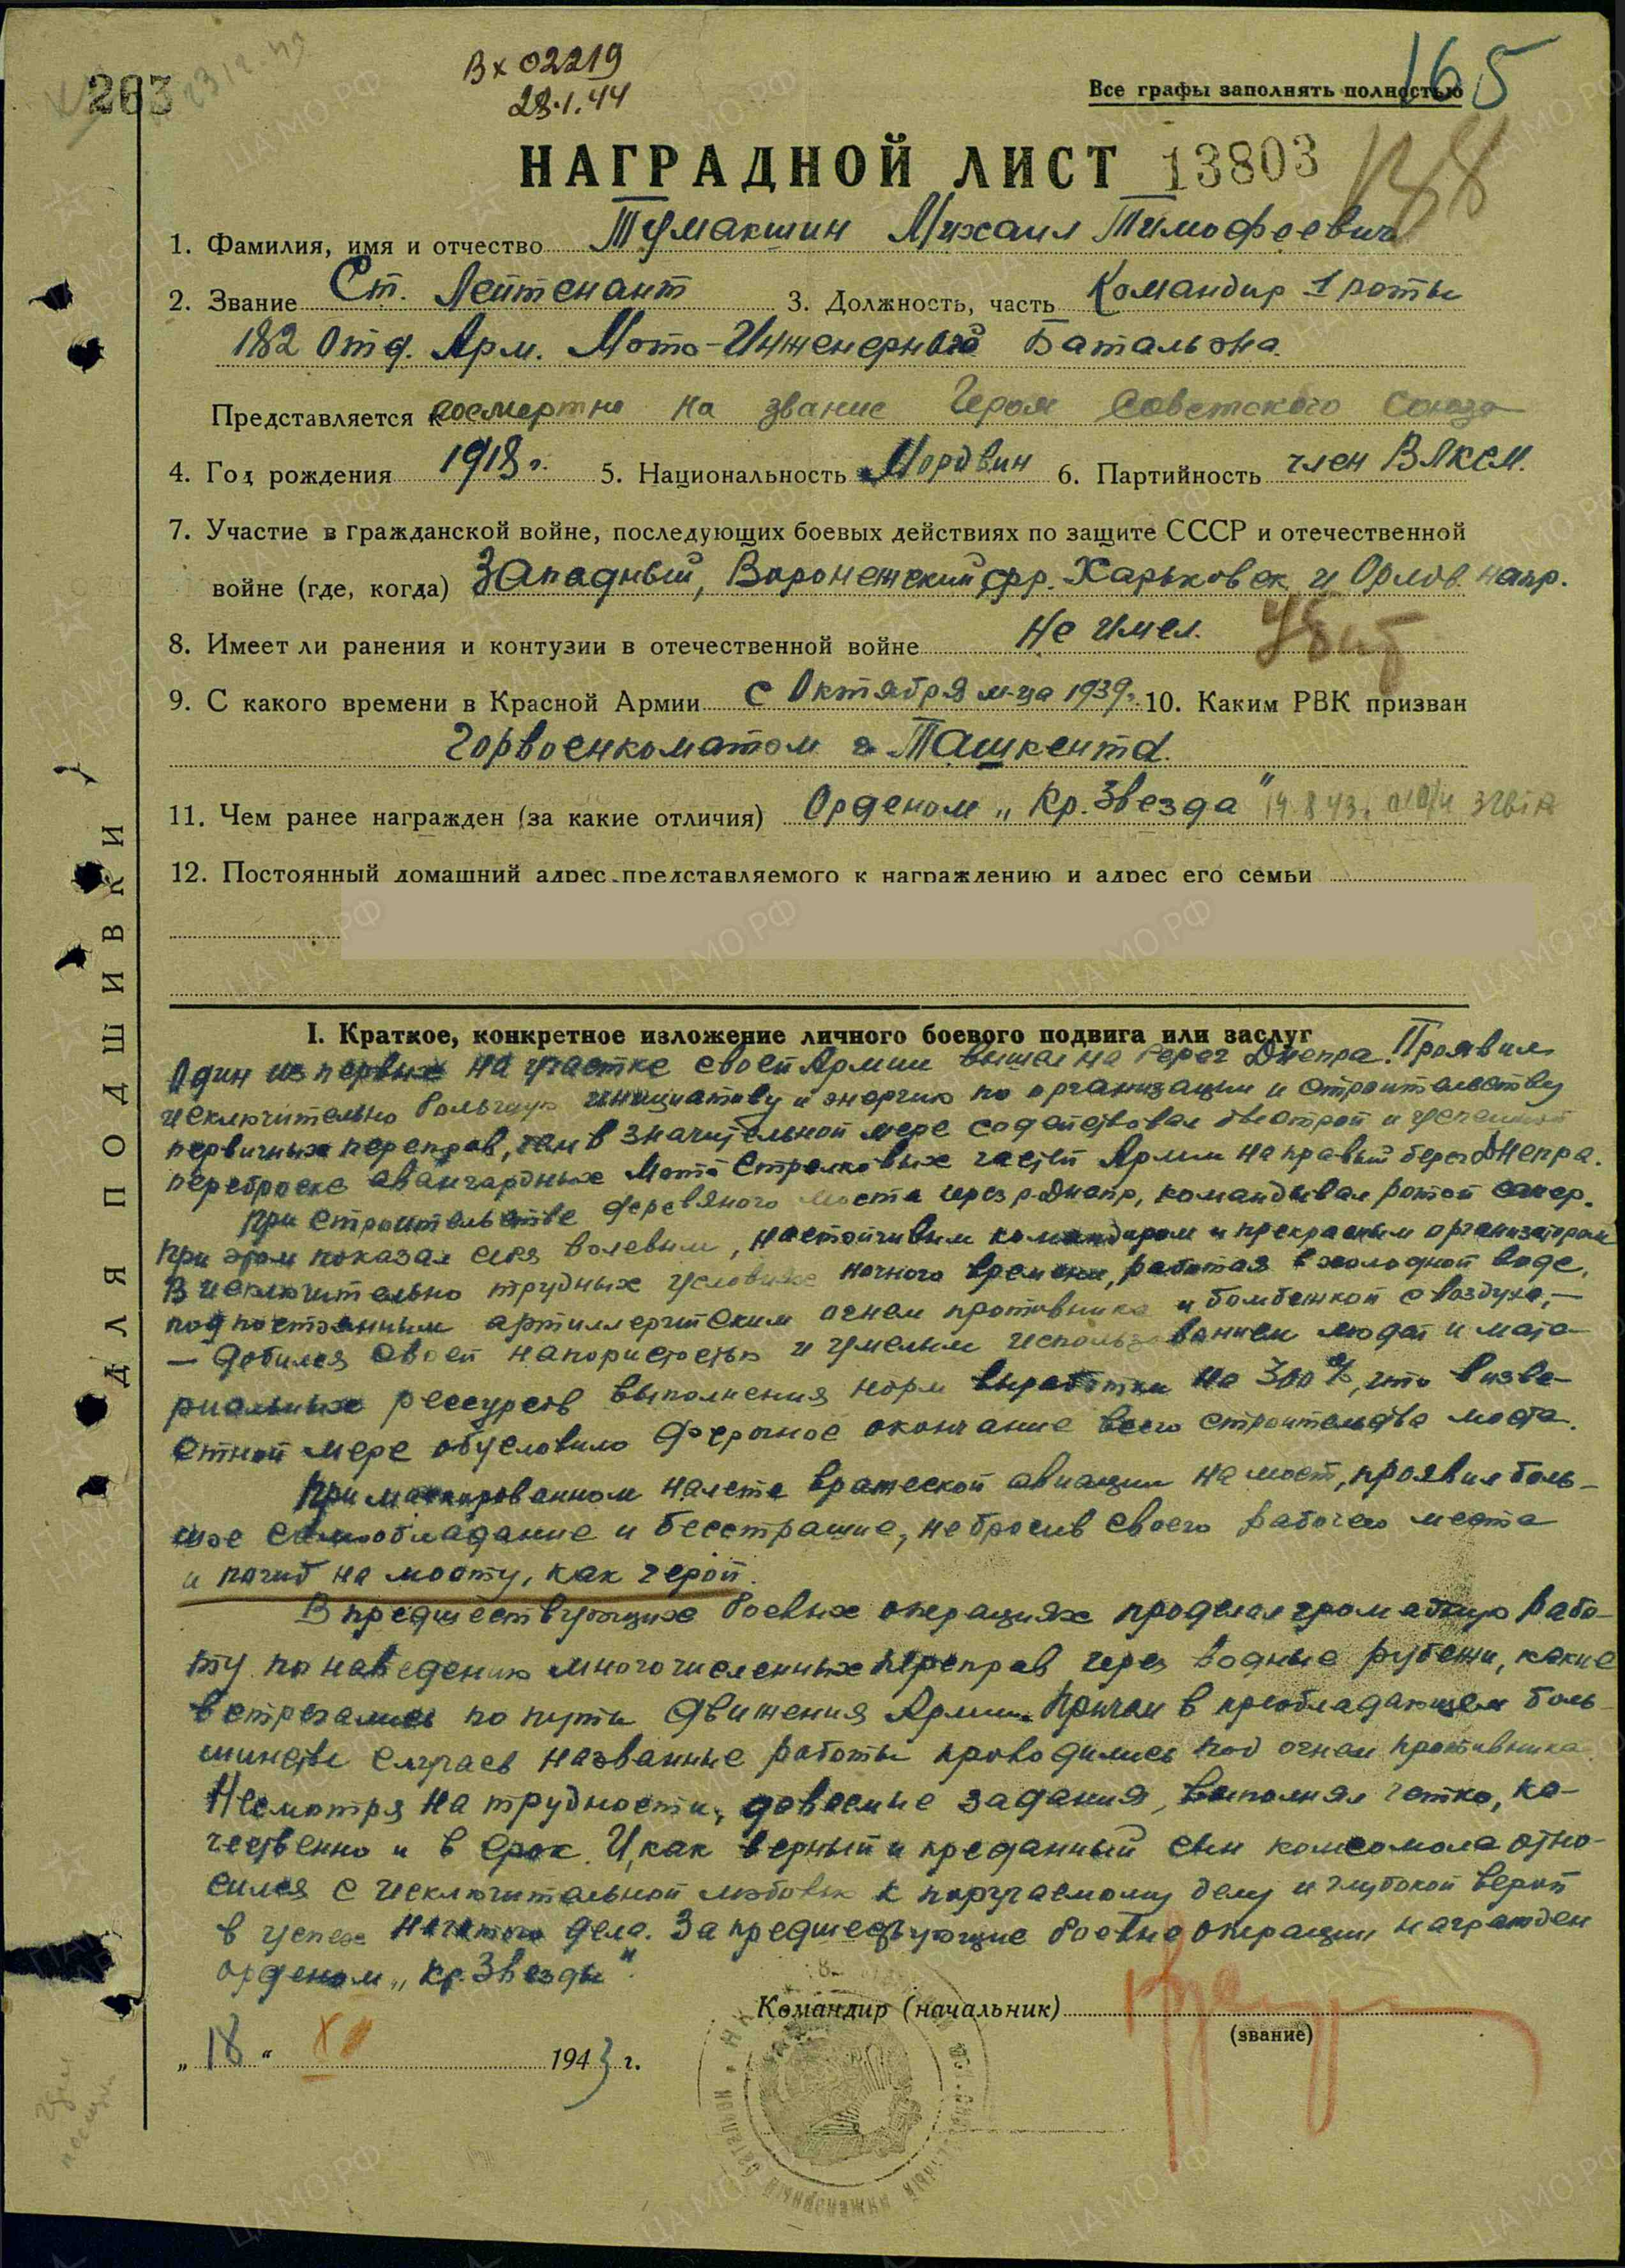 263
23 12.43
Вх 02219
28.1.44
Все графы заполнять полностью
165
188
НАГРАДНОЙ ЛИСТ 13803
1. Фамилия, имя и отчество Тумакшин Михаил Тимофеевич
2. Звание Ст. Лейтенант 3. Должность, часть Командир 1 роты
182 Отд. Арм. Мото-Инженерного Батальона.
Представляется к посмертно на звание Героя Советского Союза
4. Год рождения 1918 г. 5. Национальность Мордвин 6. Партийность член ВЛКСМ.
7. Участие в гражданской войне, последующих боевых действиях по защите СССР и отечественной
войне (где, когда) Западный, Воронежский фр. Харьковск и Орлов. напр.
8. Имеет ли ранения и контузии в отечественной войне Не имел. Убит
9. С какого времени в Красной Армии с Октября м-ца 1939г. 10. Каким РВК призван
Горвоенкоматом г. Ташкента.
11. Чем ранее награжден (за какие отличия) Орденом „Кр. Звезда" 14.8.43.
12. Постоянный домашний адрес представляемого к награждению и адрес его семьи
ДЛЯ ПОДШИВКИ
I. Краткое, конкретное изложение личного боевого подвига или заслуг
Один из первых на участке своей Армии вышел на берег Днепра. Проявил
исключительно большую инициативу и энергию по организации и строительству
первичных переправ, чем в значительной мере содействовал быстрой и успешной
переброске авангардных Мото Стрелковых частей Армии на правый берег Днепра.
При строительстве деревяного моста через р. Днепр, командывал ротой сапер.
При этом показал себя волевым, настойчивым командиром и прекрасным организатором
В исключительно трудных условиях ночного времени, работая в холодной воде,
под постоянным артиллерийским огнем противника и бомбежкой с воздуха,—
— добился своей напористостью и умелым использованием людей и мате-
риальных рессурсов выполнения норм выработки на 300%, что в изве-
стной мере обусловило досрочное окончание всего строительства моста.
При массированном налете вражеской авиации на мост, проявил боль-
шое самообладание и бесстрашие, не бросив своего рабочего места
и погиб на мосту, как герой.
В предшествующих боевых операциях проделал громадную рабо-
ту по наведению многочисленных переправ через водные рубежи, какие
встречались по пути движения Армии. Причем в преобладающем боль-
шинстве случаев названные работы проводились под огнем противника.
Несмотря на трудности, даваемые задания, выполнял четко, ка-
чественно и в срок. И, как верный и преданный сын комсомола отно-
сился с исключительной любовью к поручаемому делу и глубокой верой
в успех начатого дела. За предшествующие боевые операции награжден
орденом „Кр. Звезды".
Командир (начальник)
(звание)
„18" XII 1943 г.